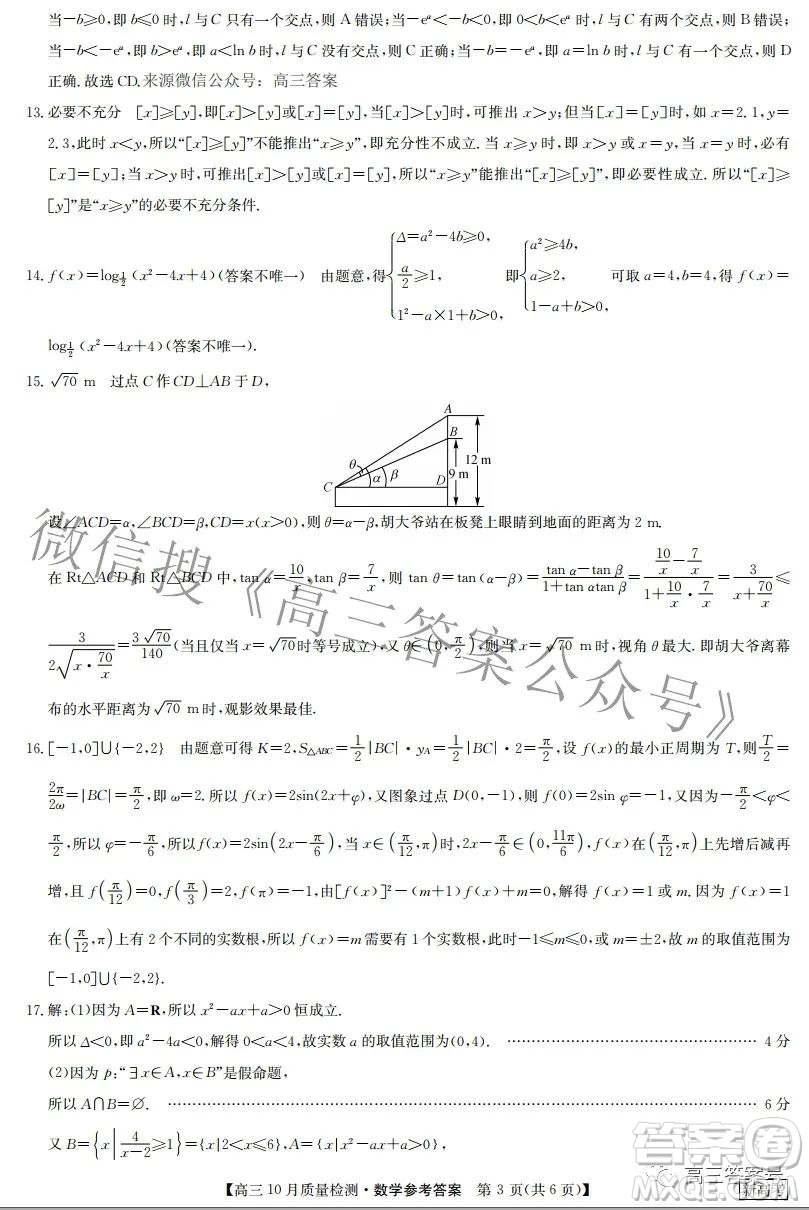 当－b≥0,即b≤0时,l与C只有一个交点,则A错误;当－eᵃ<－b<0,即0<b<eᵃ时,l与C有两个交点,则B错误;
当－b<－eᵃ,即b>eᵃ,即a<ln b时,l与C没有交点,则C正确;当－b=－eᵃ,即a=ln b时,l与C有一个交点,则D
正确.故选CD.来源微信公众号：高三答案
13.必要不充分 [x]≥[y],即[x]>[y]或[x]=[y],当[x]>[y]时,可推出x>y;但当[x]=[y]时,如x=2.1,y=
2.3,此时x<y,所以“[x]≥[y]”不能推出“x≥y”,即充分性不成立.当x≥y时,即x>y或x=y,当x=y时,必有
[x]=[y];当x>y时,可推出[x]>[y]或[x]=[y],所以“x≥y”能推出“[x]≥[y]”,即必要性成立.所以“[x]≥
[y]”是“x≥y”的必要不充分条件.
14.f(x)=log_{1/2}(x²－4x+4)(答案不唯一) 由题意,得{Δ=a²－4b≥0, a/2≥1, 1²－a×1+b>0, 即{a²≥4b, a≥2, 1－a+b>0, 可取a=4,b=4,得f(x)=
log_{1/2}(x²－4x+4)(答案不唯一).
15.√70 m 过点C作CD⊥AB于D,
A
B
θ
12 m
C
α
β
D
9 m
设∠ACD=α,∠BCD=β,CD=x(x>0),则θ=α－β,胡大爷站在板凳上眼睛到地面的距离为2 m.
在Rt△ACD和Rt△BCD中,tan α=10/x,tan β=7/x,则tan θ=tan(α－β)=(tan α－tan β)/(1+tan αtan β)=(10/x－7/x)/(1+10/x·7/x)=3/(x+70/x)≤
3/(2√(x·70/x))=3√70/140(当且仅当x=√70时等号成立),又θ∈(0,π/2),则当x=√70 m时,视角θ最大.即胡大爷离幕
布的水平距离为√70 m时,观影效果最佳.
16.[－1,0]∪{－2,2} 由题意可得K=2,S△ABC=1/2|BC|·y_A=1/2|BC|·2=π/2,设f(x)的最小正周期为T,则T/2=
2π/2ω=|BC|=π/2,即ω=2.所以f(x)=2sin(2x+φ),又图象过点D(0,－1),则f(0)=2sin φ=－1,又因为－π/2<φ<
π/2,所以φ=－π/6,所以f(x)=2sin(2x－π/6),当x∈(π/12,π)时,2x－π/6∈(0,11π/6),f(x)在(π/12,π)上先增后减再
增,且f(π/12)=0,f(π/3)=2,f(π)=－1,由[f(x)]²－(m+1)f(x)+m=0,解得f(x)=1或m.因为f(x)=1
在(π/12,π)上有2个不同的实数根,所以f(x)=m需要有1个实数根,此时－1≤m≤0,或m=±2,故m的取值范围为
[－1,0]∪{－2,2}.
17.解:(1)因为A=R,所以x²－ax+a>0恒成立.
所以Δ<0,即a²－4a<0,解得0<a<4,故实数a的取值范围为(0,4). …… 4分
(2)因为p:“∃x∈A,x∈B”是假命题,
所以A∩B=∅. …… 6分
又B={x|4/(x－2)≥1}={x|2<x≤6},A={x|x²－ax+a>0},
【高三10月质量检测·数学参考答案 第3页(共6页)】
新高考
微信搜《高三答案公众号》
高三答案号
答案卷
MXQE.COM